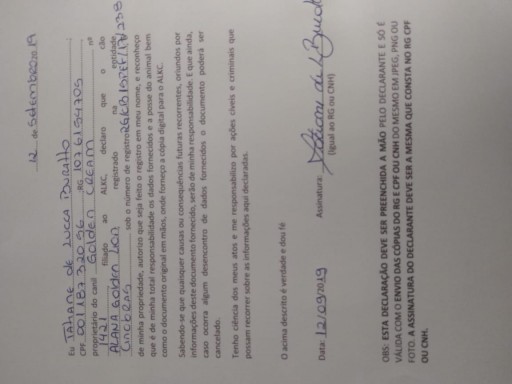 12 de setembro 2019
Eu Tatiane de Lucca Buratto
CPF 00118732056 RG 1076154705
proprietário do canil Golden Cream nº
1421 filiado ao ALKC, declaro que o cão
ALANA Golden Lion registrado na entidade
Cinobras sob o número de registro
de minha propriedade, autorizo que seja feito o registro em meu nome, e reconheço
que é de minha total responsabilidade os dados fornecidos e a posse do animal bem
como o documento original em mãos, onde forneço a cópia digital para o ALKC.
Sabendo-se que quaisquer causas ou consequências futuras recorrentes, oriundos por
informações deste documento fornecido, serão de minha responsabilidade. E que ainda,
caso ocorra algum desencontro de dados fornecidos o documento poderá ser
cancelado.
Tenho ciência dos meus atos e me responsabilizo por ações cíveis e criminais que
possam recorrer sobre as informações aqui declaradas.
O acima descrito é verdade e dou fé
Data: 12/09/2019 Assinatura:
(Igual ao RG ou CNH)
OBS: ESTA DECLARAÇÃO DEVE SER PREENCHIDA A MÃO PELO DECLARANTE E SÓ É
VÁLIDA COM O ENVIO DAS CÓPIAS DO RG E CPF OU CNH DO MESMO EM JPEG, PNG OU
FOTO. A ASSINATURA DO DECLARANTE DEVE SER A MESMA QUE CONSTA NO RG CPF
OU CNH.